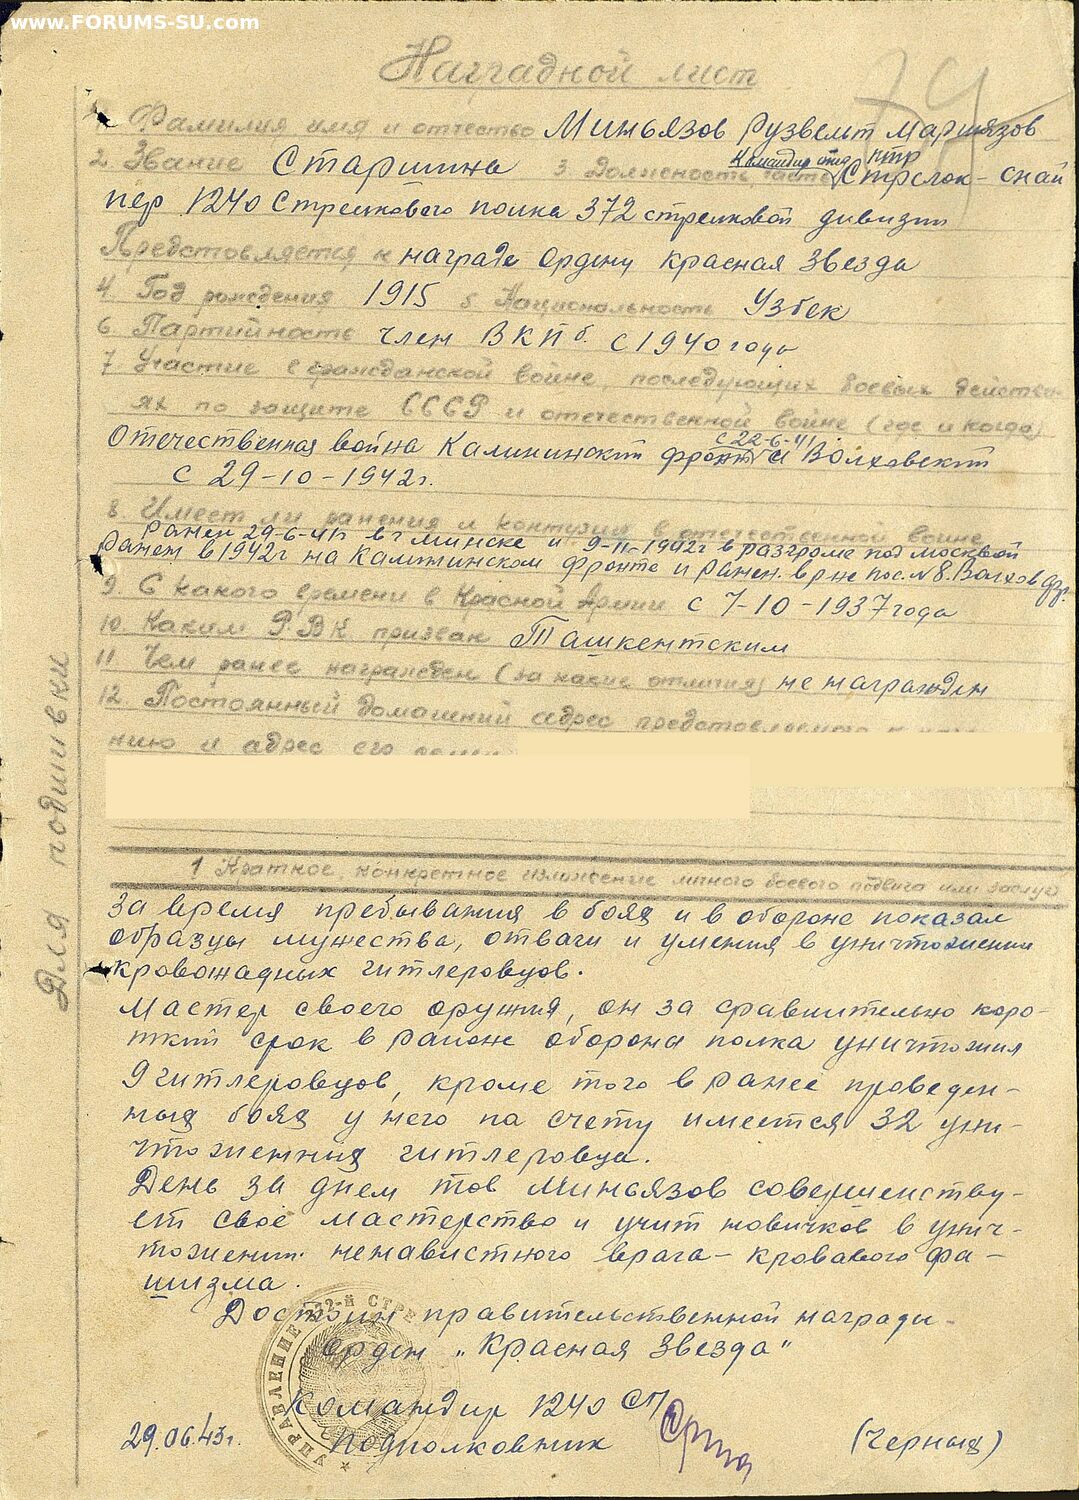 www.FORUMS-SU.com
Наградной лист
1. Фамилия имя и отчество Миньязов Рузвельт Мариязов
2. Звание Старшина 3. Должность, часть Командир отд. птр Стрелок-снай
пер 1240 Стрелкового полка 372 стрелковой дивизии
Предстовляется к награде ордену красная Звезда
4. Год рождения 1915 5. Национальность Узбек
6. Партийность член ВКПб. с 1940 года
7. Участие в гражданской войне, последующих боевых действи
ях по защите СССР и отечественной войне (где и когда)
Отечественная война Калининский фронт с 22-6-41 и Волховский
с 29-10-1942г.
8. Имеет ли ранения и контузии в отечественной войне
Ранен 29-6-41г в г Минске и 9-11-1942г в разгроме под москвой
Ранен в 1942г на Калининском фронте и ранен. в р не пос. №8. Волхов фр.
9. С какого времени в Красной Армии с 7-10-1937 года
10. Каким РВК призван Ташкентским
11. Чем ранее награжден (за какие отличия) не награжден
12. Постоянный домашний адрес предстовляемого к
нию и адрес его
Для подшивки
1 Краткое, конкретное изложение личного боевого подвига или заслуг
За время пребывания в боях и в обороне показал
образцы мужества, отваги и умения в уничтожении
кровожадных гитлеровцов.
Мастер своего оружия, он за сравнительно коро-
ткий срок в районе обороны полка уничтожил
9 гитлеровцов, кроме того в ранее проведен-
ных боях у него на счету имеется 32 уни-
чтоженных гитлеровца.
День за днем тов Миньязов совершенству-
ет свое мастерство и учит новичков в унич-
тожении ненавистного врага - кровавого фа-
шизма.
Достоин правительственной награды-
орден „Красная Звезда"
УПРАВЛЕНИЕ 372-Й СТРЕ
Командир 1240 СП
29.06.43г. Подполковник (Черных)